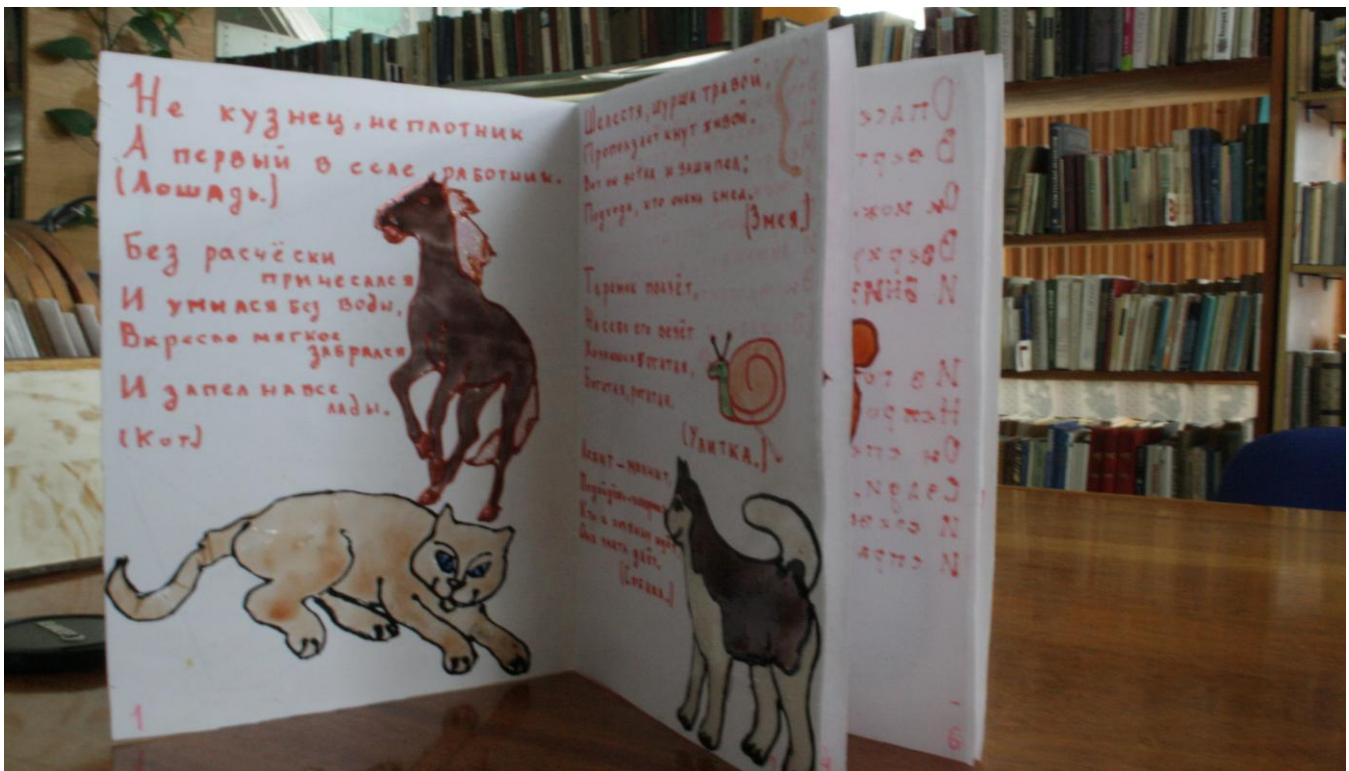 Не кузнец, не плотник
А первый в селе работник.
(Лошадь.)
Без расчёски
причесался
И умылся без воды,
В кресло мягкое
забрался
И запел на все
лады.
(Кот)
1
Шелестя, шурша травой,
Проползает кнут живой.
Вот он встал и зашипел:
Подходи, кто очень смел.
(Змея.)
Теремок ползёт,
На себе его везёт
Хозяюшка богатая,
Богатая, рогатая.
(Улитка.)
Лежит – молчит,
Подойдёшь – заворчит
Кто к хозяину идёт
Она знать даёт.
(Собака.)
6